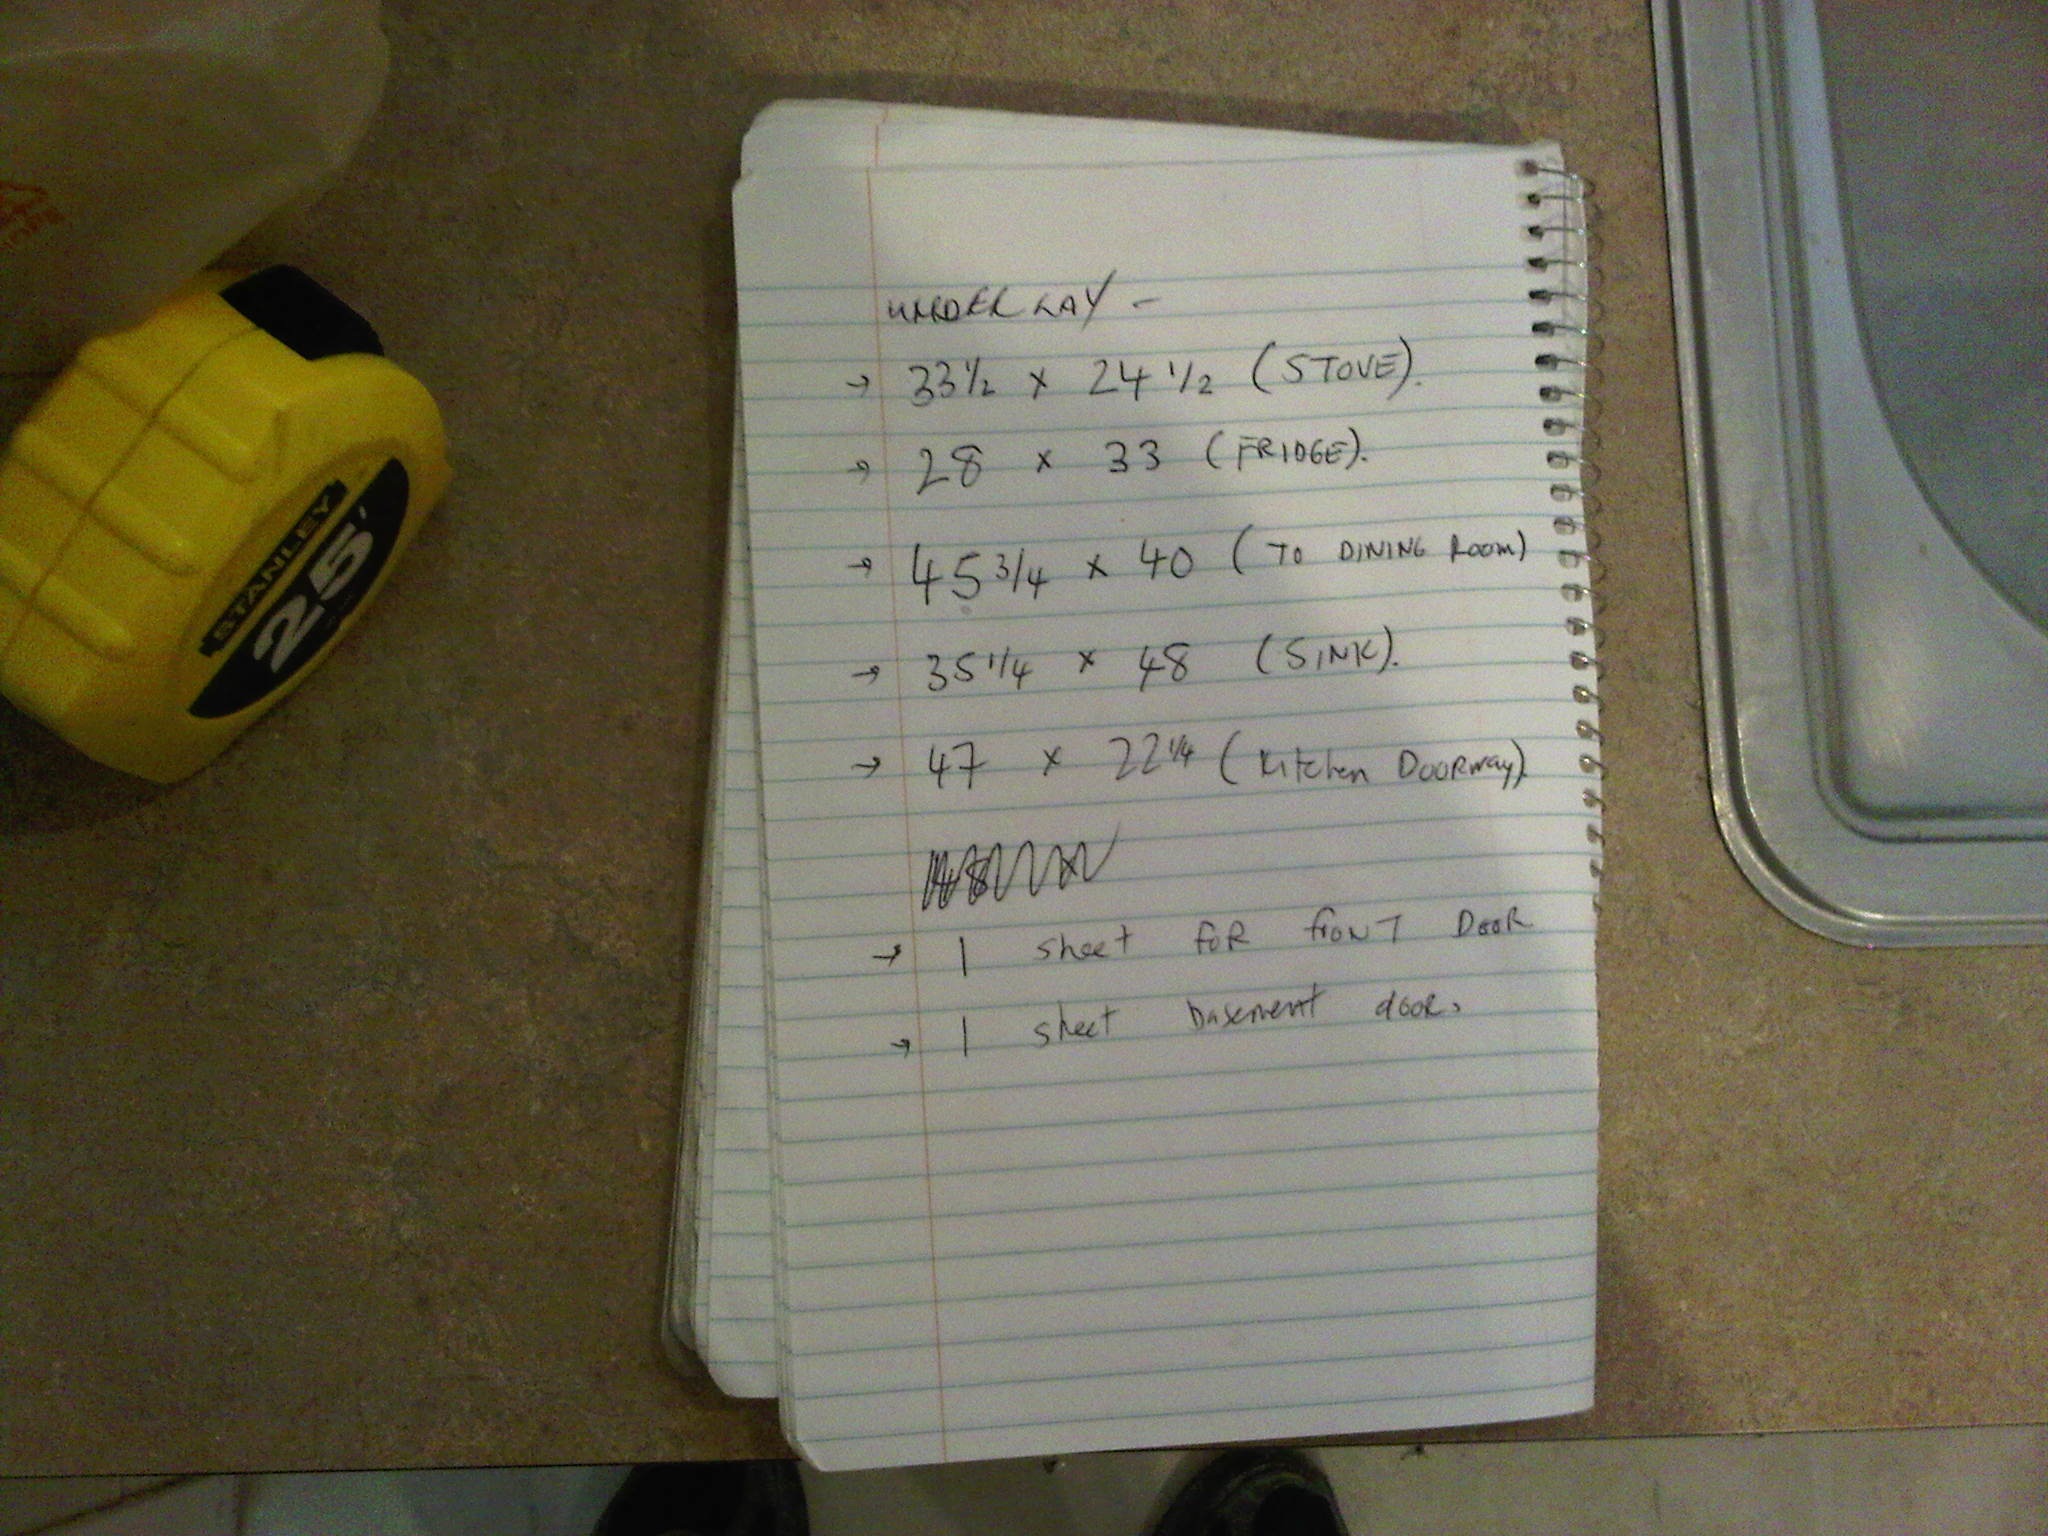 UNDERLAY -
→ 33 1/2 x 24 1/2 (STOVE).
→ 28 x 33 (FRIDGE).
→ 45 3/4 x 40 (TO DINING ROOM)
→ 35 1/4 x 48 (SINK).
→ 47 x 22 1/4 (Kitchen DOORway).
→ 1 sheet FOR fRONT DOOR
→ 1 sheet basement dOOR.
STANLEY
25'